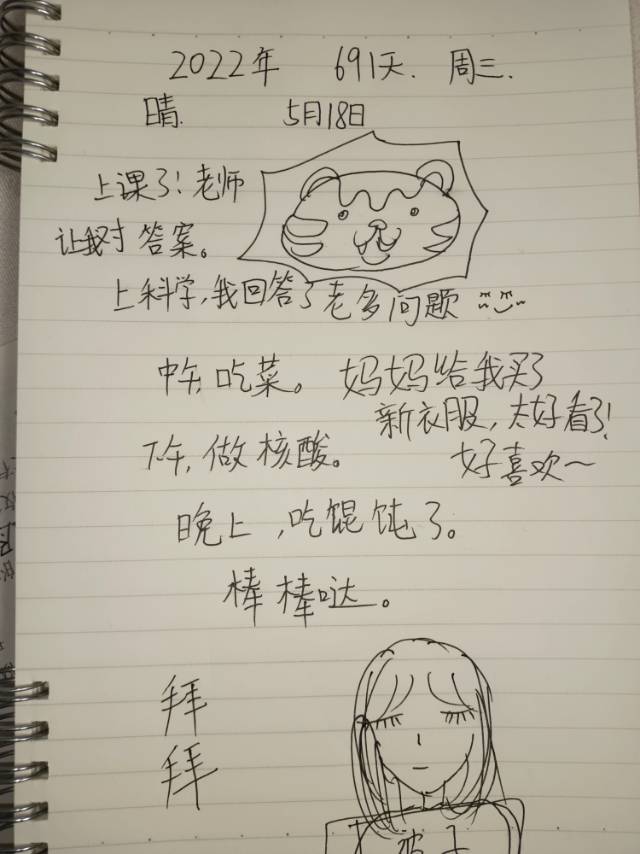 2022年 691天. 周三.
晴. 5月18日
上课了!老师
让我对答案。
上科学,我回答了老多问题
中午,吃菜。妈妈给我买了
新衣服,太好看了!
下午,做核酸。 好喜欢～
晚上,吃馄饨了。
棒棒哒。
拜
拜